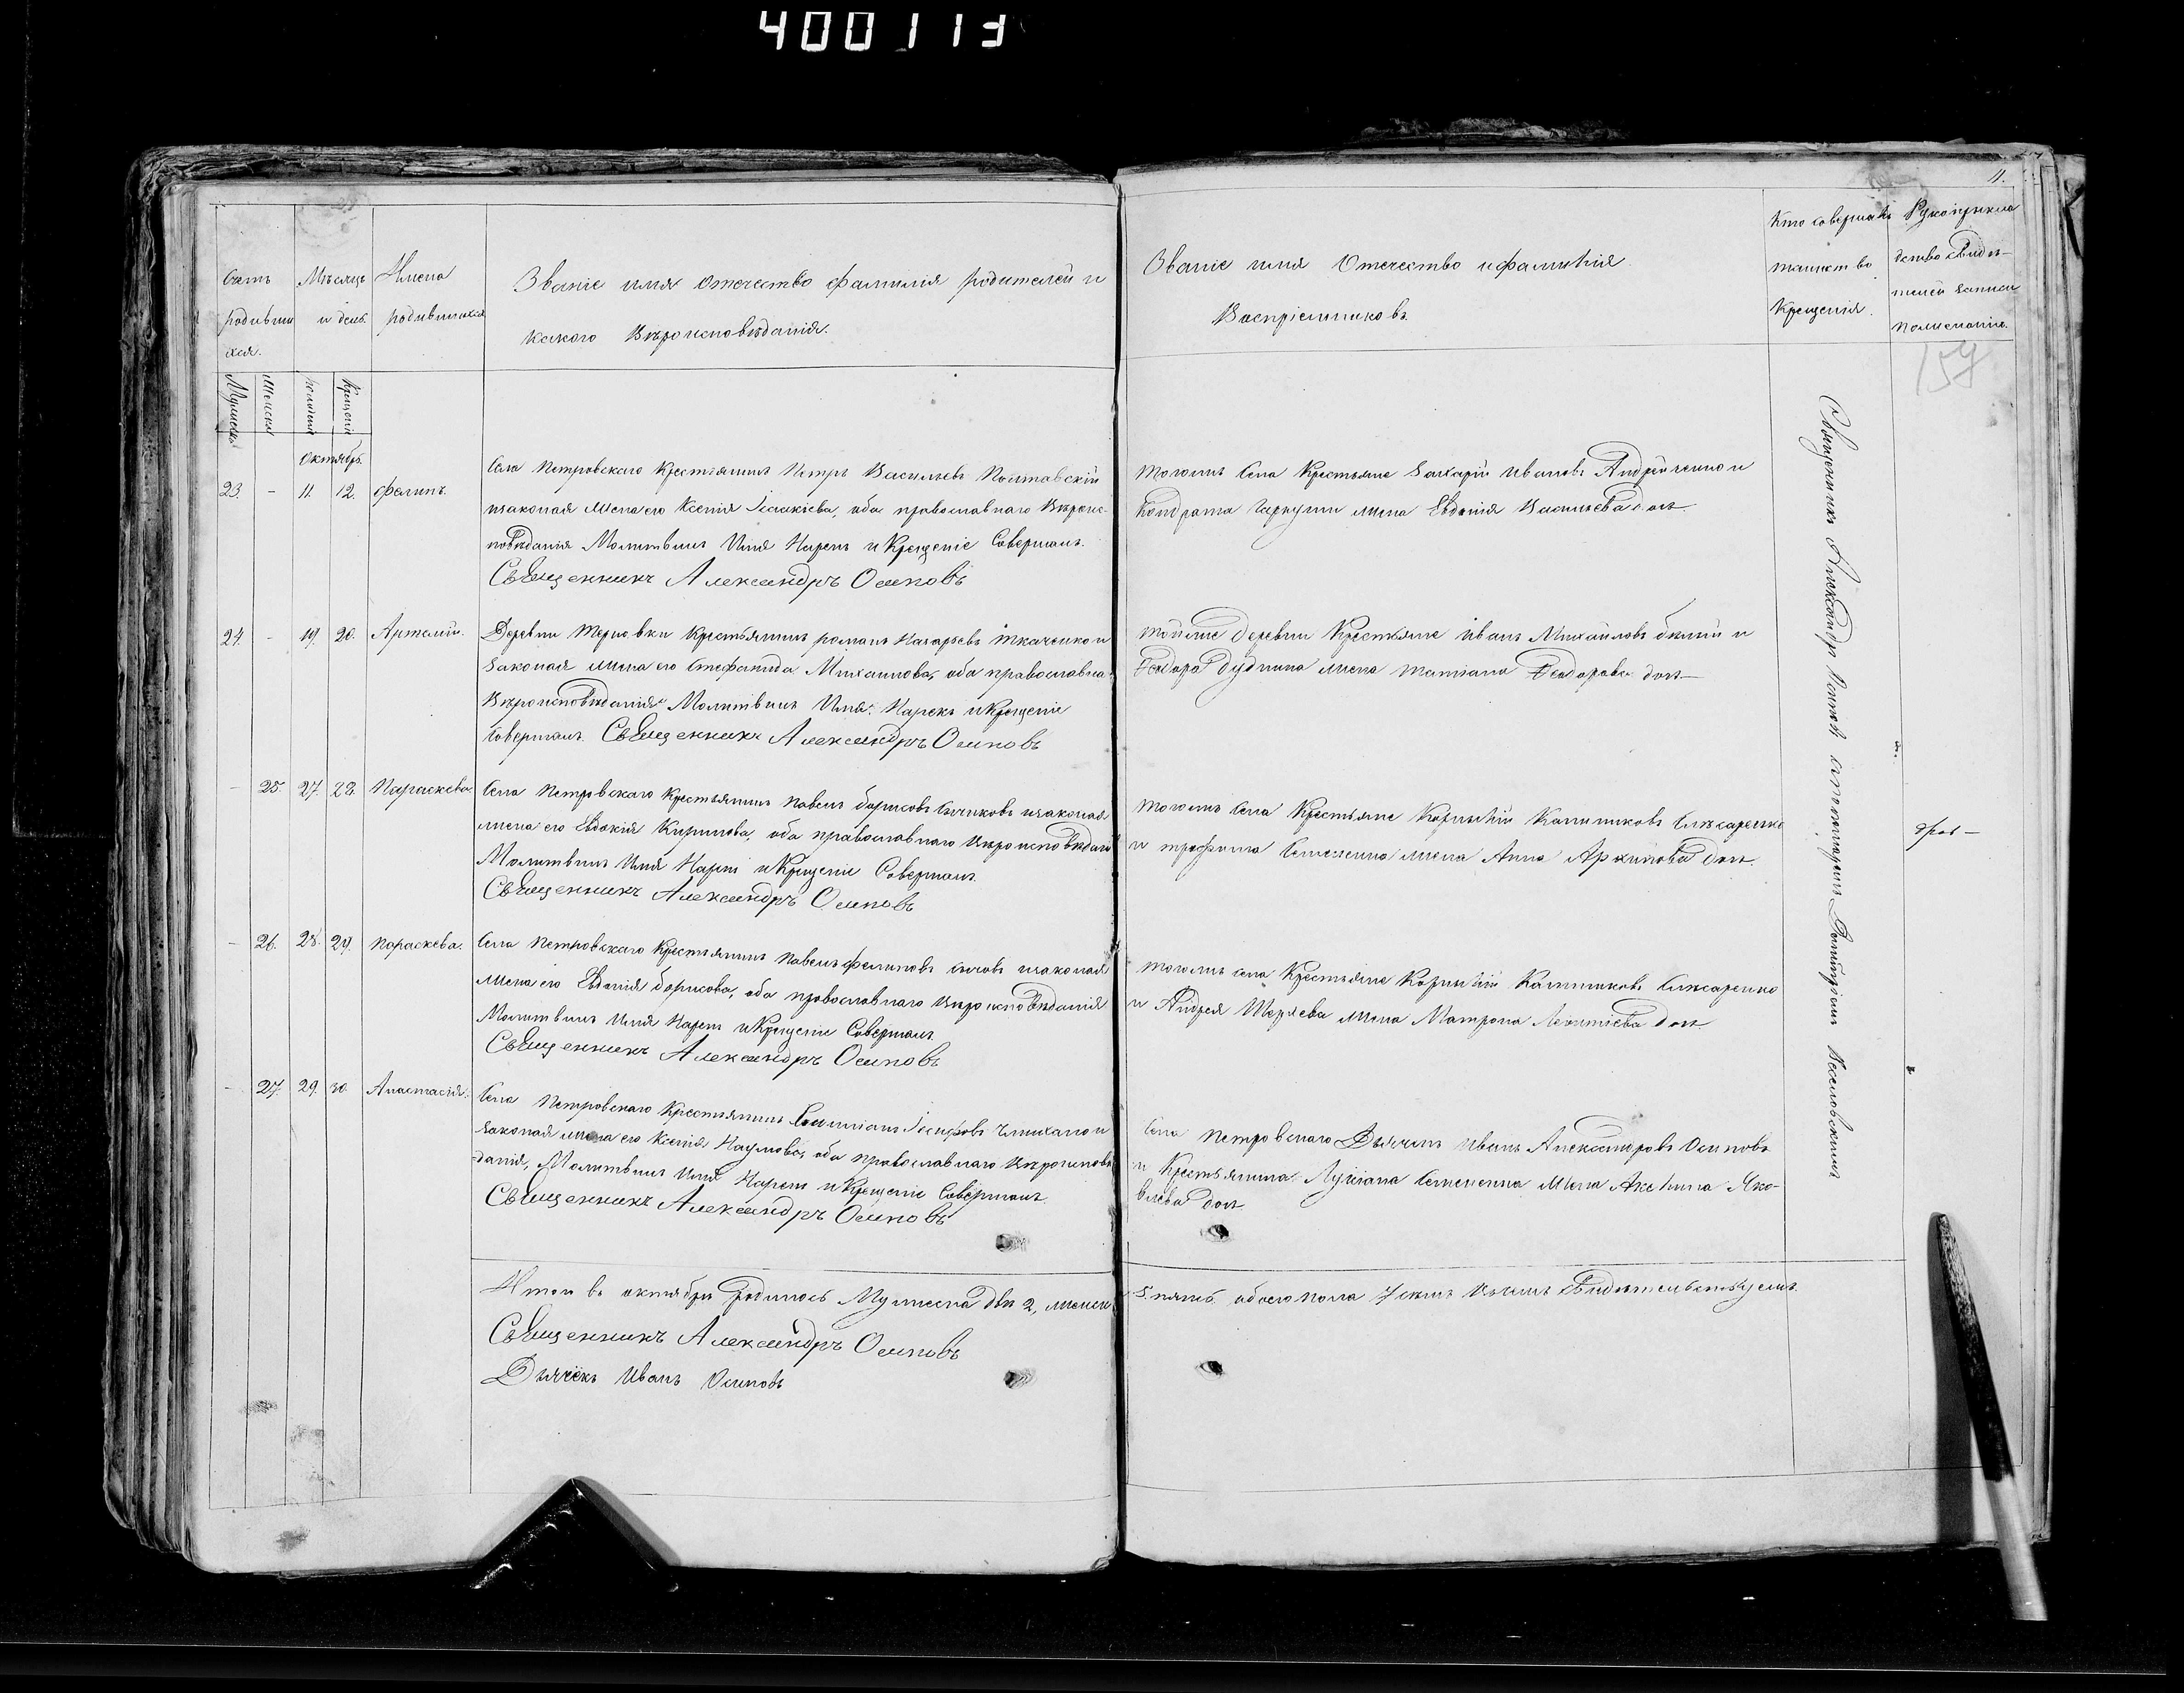 400113
11.
Счетъ
родивши
хся.
Мѣсяцъ
и день.
Имена
родившихся
Званіе имя отечество фамилія родителей и
какого Вѣроисповѣданія.
Званіе имя Отечество и фамилія
Воспріемниковъ.
Кто совершалъ
таинство
Крещенія.
Рукоприкла
дство свидѣ-
телей записи
по желанію.
157
Мужеска
Женска
рожденія
Крещенія
Октябрь.
23. - 11. 12. Филипъ.
Села Петровскаго Крестьянинъ Петръ Васильевъ Полтавскій
изаконая жена его Ксенія Исаакіева, оба православнаго Вѣроис-
повѣданія Молитвилъ Имя Нарекъ и Крещеніе Совершалъ.
Священникъ Александръ Осиповъ
тогожъ Села Крестьяне Захарій Ивановъ Андрейченко и
Кондрата жена Евдокія Васильева дочь.
24. - 19. 20. Артемій.
Деревни Терновки Крестьянинъ романъ Назарьевъ Ткаченко и
законая жена его Стефанида Михаилова, оба православнаго
Вѣроисповѣданія Молитвилъ Имя Нарекъ и Крещеніе
Совершалъ. Священникъ Александръ Осиповъ
тойже деревни Крестьяне Иванъ Михайловъ бѣлый и
Феодора Дудника жена татіана Феодорова дочь
- 25. 27. 28. Параскева.
Села Петровскаго Крестьянинъ Павелъ борисовъ изаконая
жена его Евдокія Кирилова, оба православнаго Вѣроисповѣданія
Молитвилъ Имя Нарекъ и Крещеніе Совершалъ.
Священникъ Александръ Осиповъ
тогожъ Села Крестьяне Корнилій Калиниковъ Слюсаренко
и трофима Семенника жена Анна Архипова дочь.
- 26. 28. 29. Параскева.
Села Петровскаго Крестьянинъ Павелъ филиповъ сычовъ изаконая
жена его Евдокія борисова, оба православнаго Вѣроисповѣданія
Молитвилъ Имя Нарекъ и Крещеніе Совершалъ.
Священникъ Александръ Осиповъ
тогожъ села Крестьяне Корнилій Калиниковъ Слюсаренко
и Андрея жена Матрона Леонтіева дочь.
- 27. 29. 30. Анастасія.
Села Петровскаго Крестьянинъ Іосифовъ и
законая жена его Ксенія Наумова, оба православнаго Вѣроисповѣ
-данія, Молитвилъ Имя Нарекъ и Крещеніе Совершалъ.
Священникъ Александръ Осиповъ
Села Петровскаго Дьячекъ Иванъ Александровъ Осиповъ
и Крестьянина Лукіана Семененка жена Акелина Яко-
влева дочь
Священникъ Александръ Осиповъ Веселовскимъ
Итого въ октябрѣ родилось Мужеска два 2, женска
5. пять. обоего пола 7 семь Въ чемъ Свидѣтельствуемъ.
Священникъ Александръ Осиповъ
Дьячёкъ Иванъ Осиповъ